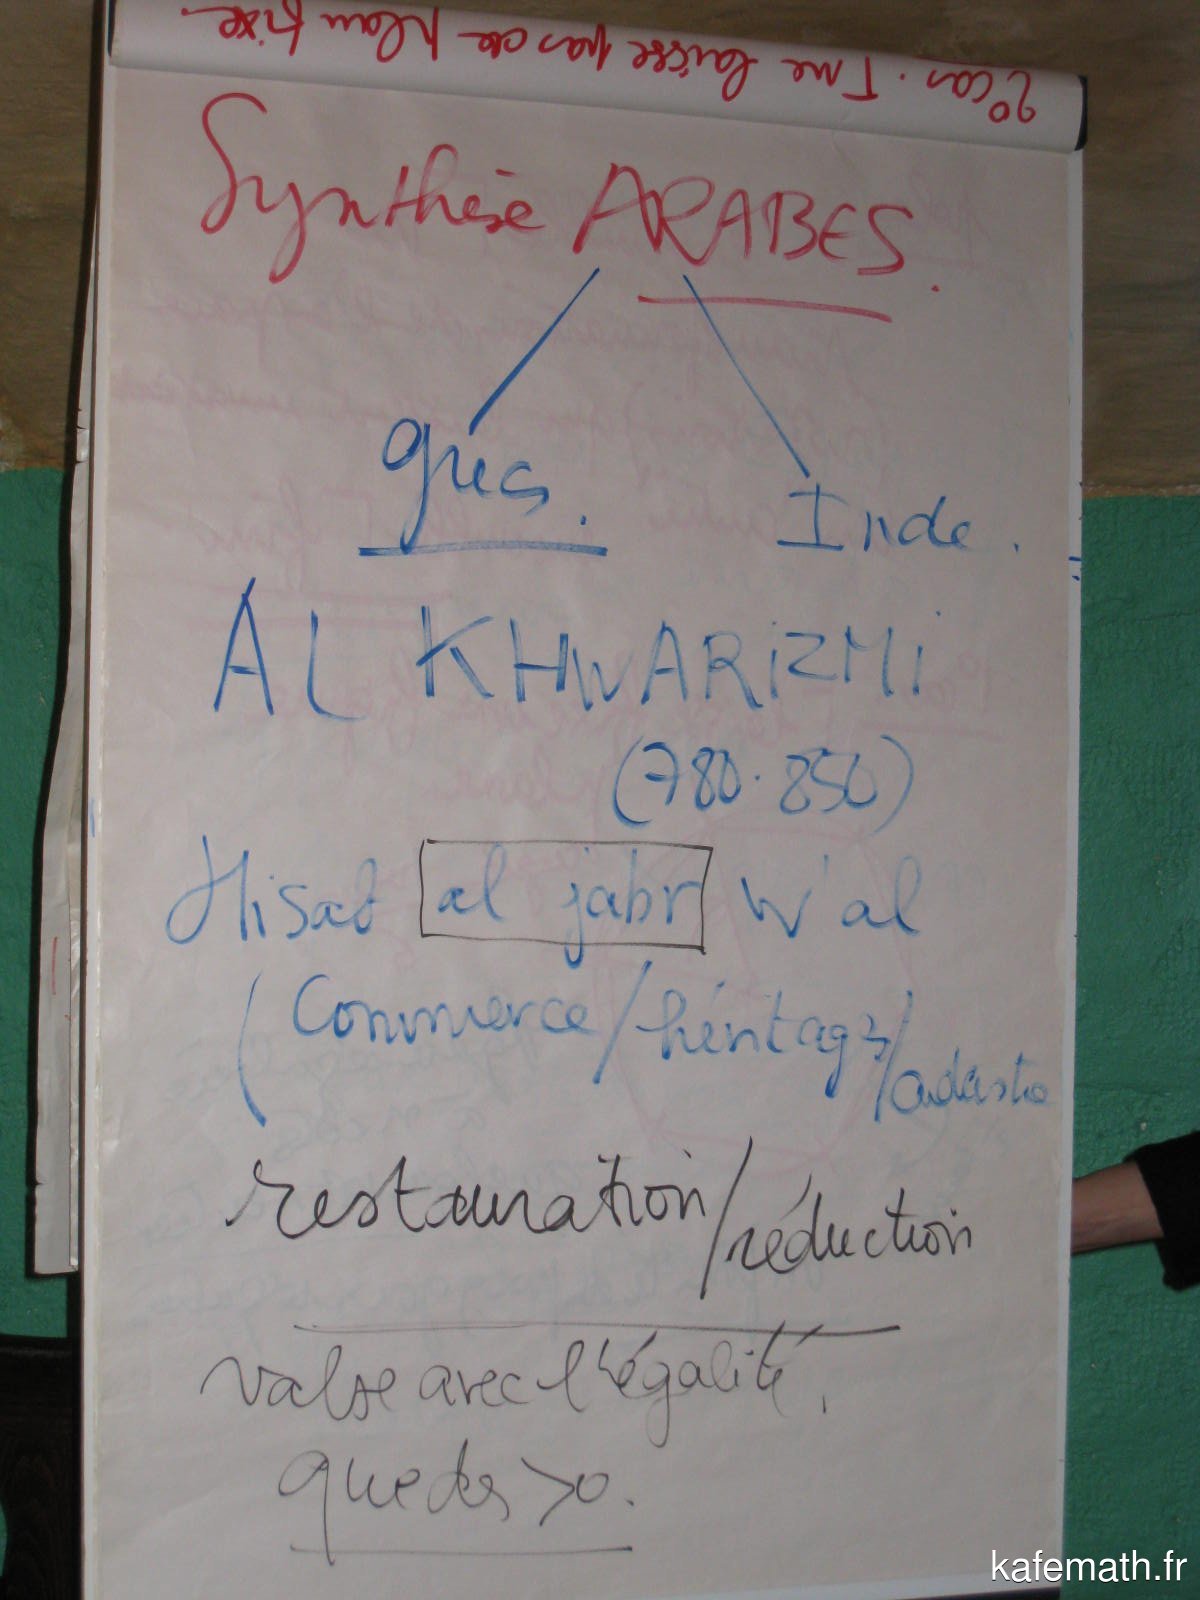 2° cas. T ne laisse pas de plan fixe.
Synthèse ARABES.
grecs. Inde.
AL KHWARiZMi
(780.850)
Hisab al jabr w'al
(Commerce/héritages/cadastre
restauration/réduction
valse avec l'égalité.
que des >0.
kafemath.fr